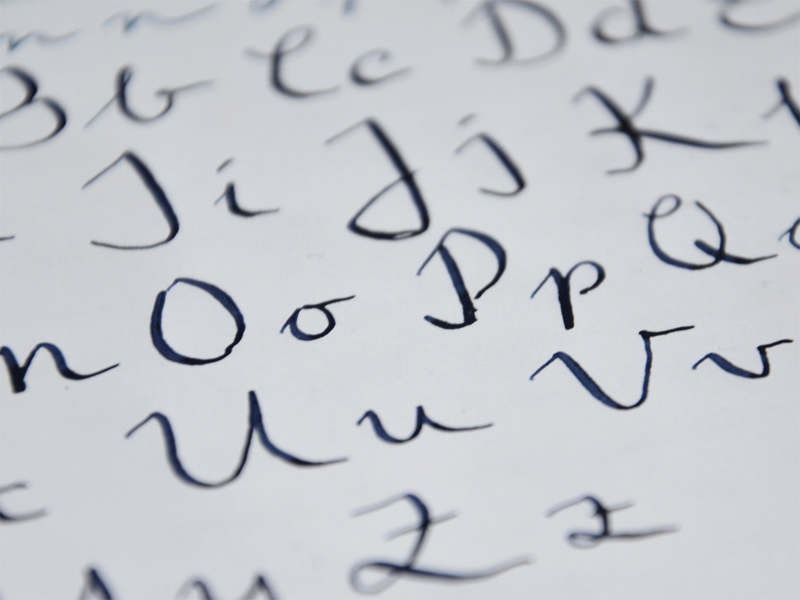 B b C c D d
I i J j K
n O o P p Q
U u V v
y Z z